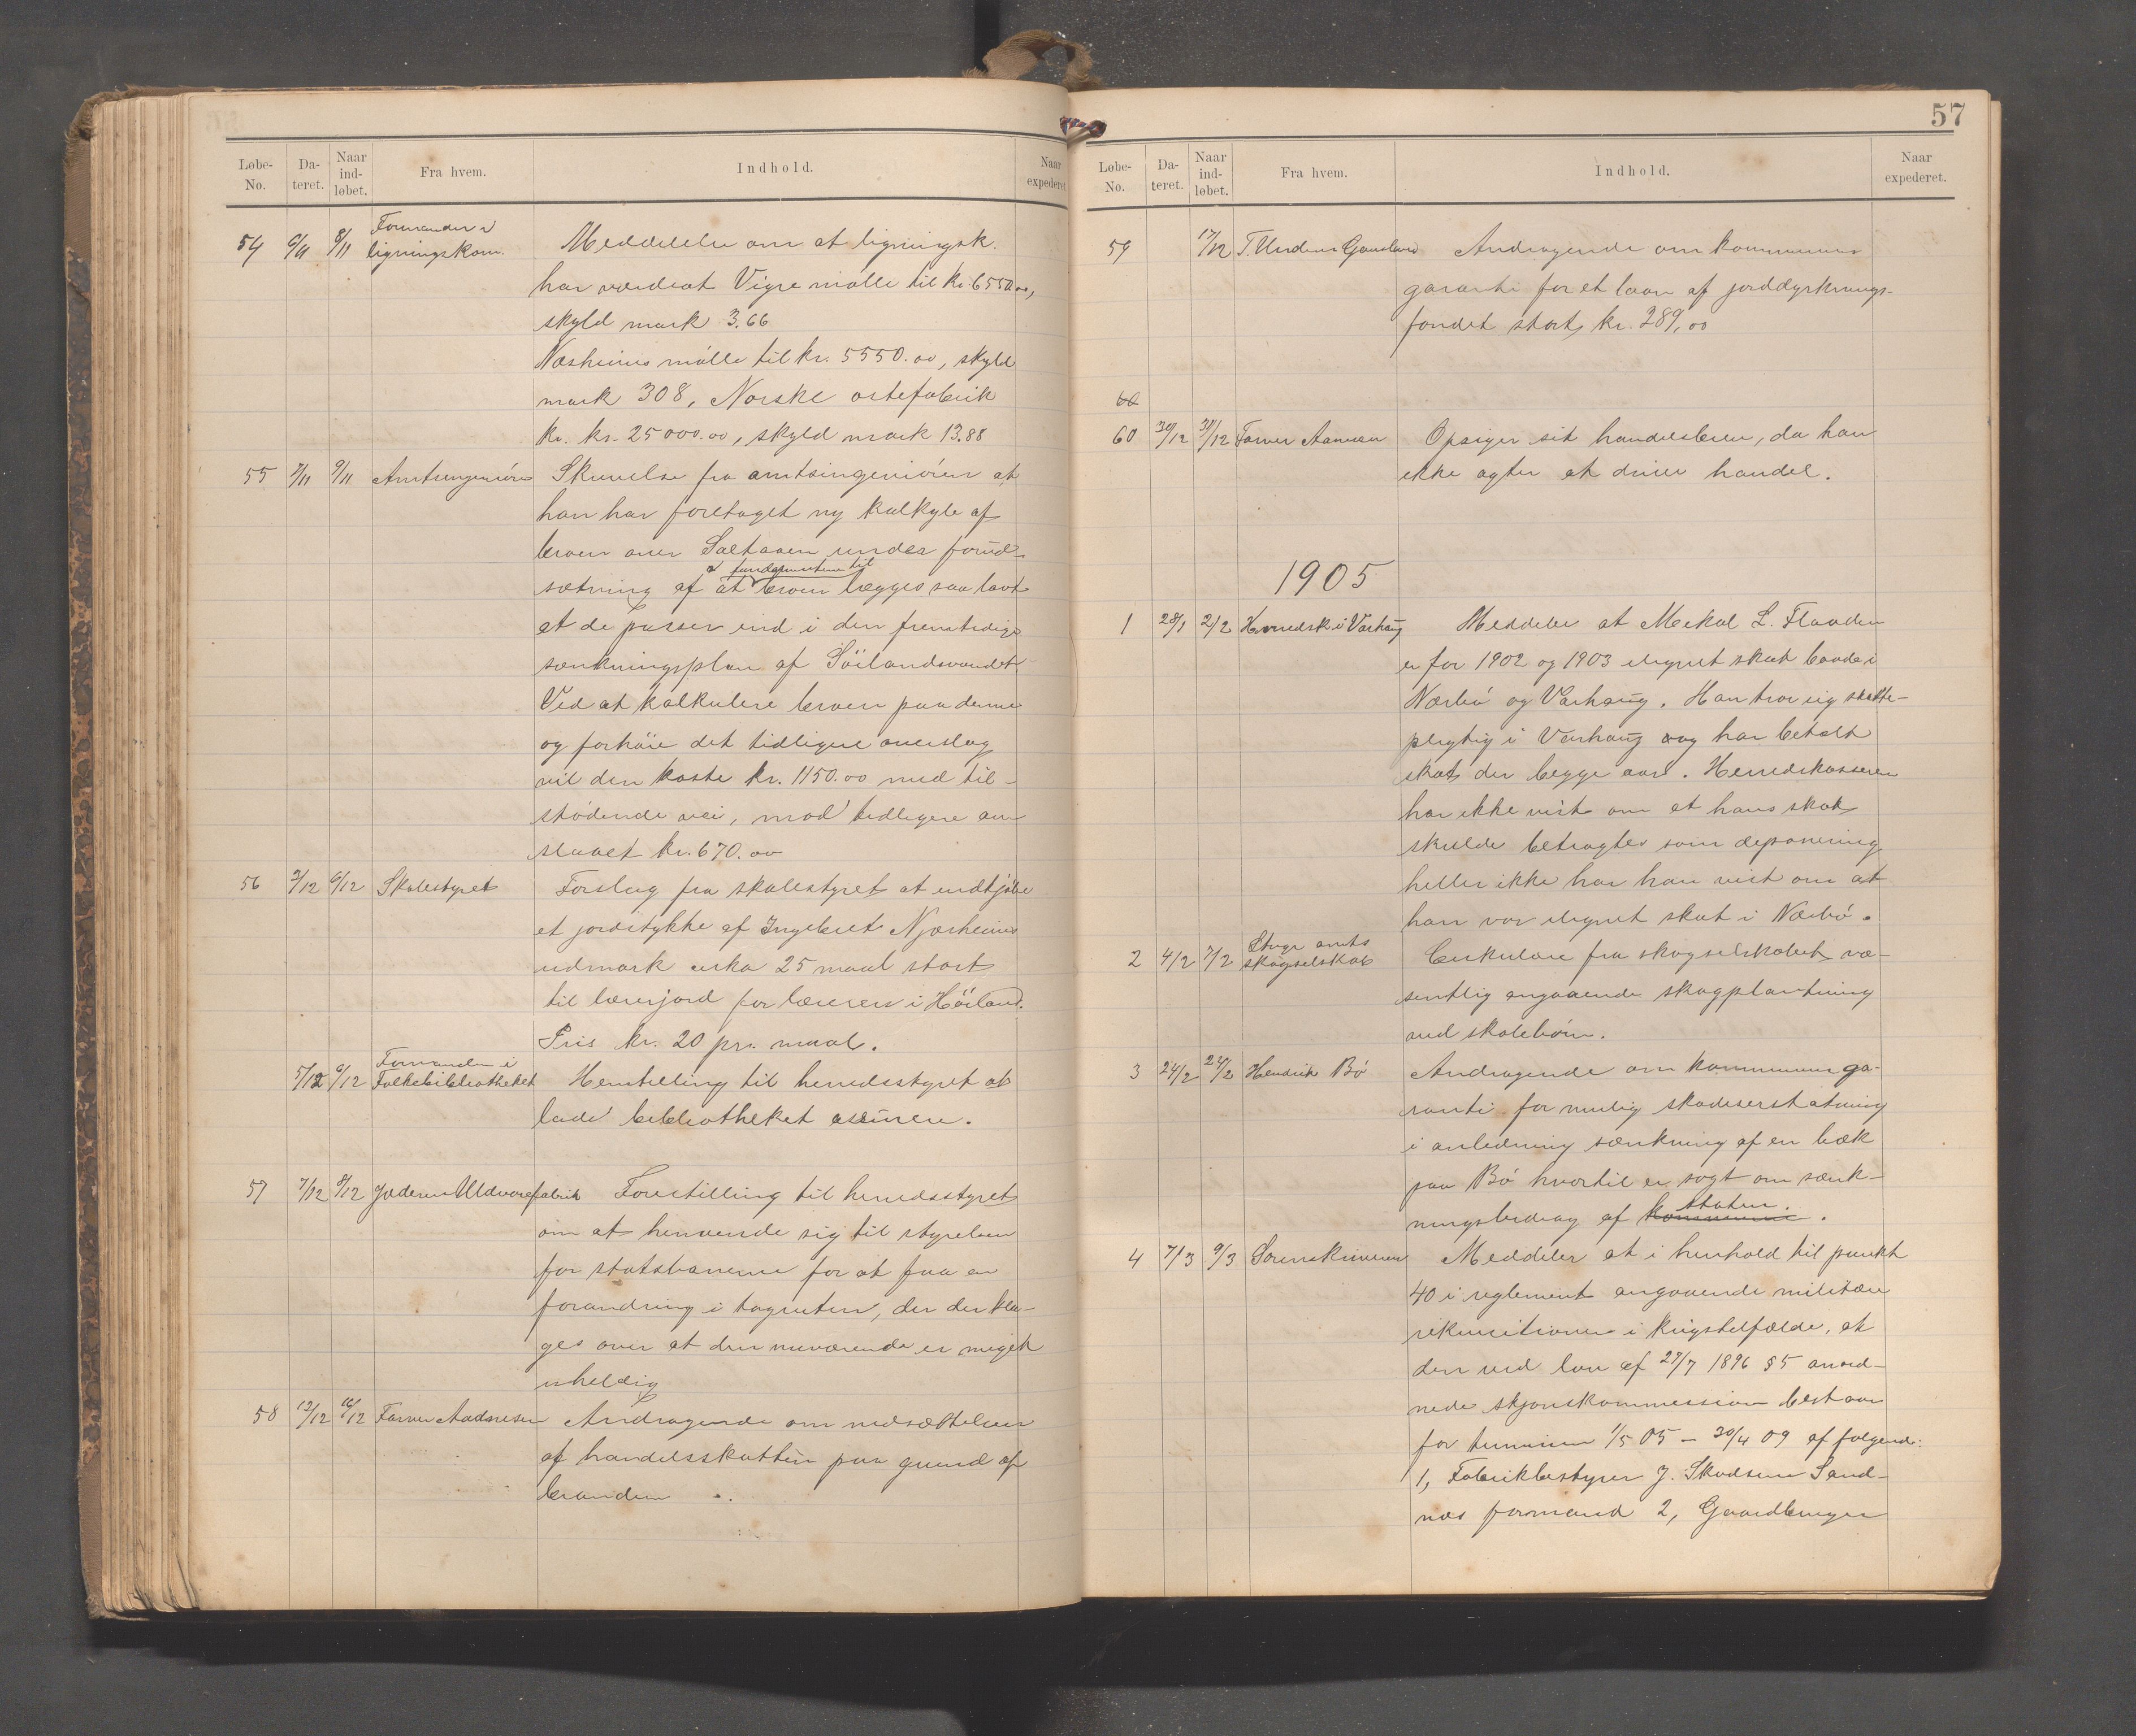 Løbe-No. Da-teret. Naar ind-løbet. Fra hvem. Indhold. Naar expederet
54 6/11 8/11 Formanden i ligningskom. Meddelelse om at ligningsk.
har værdsat Vigre mølle til kr. 6550.00,
skyld mark 3.66
Næsheims mølle til kr. 5550.00, skyld
mark 308, Norske ostefabrik
kr. kr. 25000.00, skyld mark 13.88
55 7/11 9/11 Amtsingeniøren Skrivelse fra amtsingeniøren at
han har foretaget ny kalkyle af
broen over Saltaaen under forud-
sætning af at fundamenterne til broen lægges saa lavt
at de passer ind i den fremtidige
sænkningsplan af Söilandsvandet.
Ved at kalkulere broen paa denne
og forhøie det tidligere overslag
vil den koste kr. 1150.00 med til-
stødende vei, mod tidligere an
slaaet kr. 670.00
56 3/12 6/12 Skolestyret Forslag fra skolestyret at indkjøbe
et jordstykke af Ingebret Njærheims
udmark cirka 25 maal stort
til lærerjord for læreren i Höiland.
Pris kr. 20 pr. maal.
5/12 6/12 Formanden i Folkebibliotheket Henstilling til herredsstyret at
lade bibliotheket assurere.
57 7/12 9/12 Jæderens Uldvarefabrik Forestilling til herredsstyret
om at henvende sig til styrelsen
for statsbanerne for at faa en
forandring i togruten, der der kla-
ges over at den nuværende er meget
uheldig
58 12/12 16/12 Farver Aadnesen Andragende om nedsættelsen
af handelsskatten paa grund af
branden.
57
Løbe-No. Da-teret. Naar ind-løbet. Fra hvem. Indhold. Naar expederet.
59 17/12 T. Undem Gausland Andragende om kommunens
garanti for et laan af jorddyrknings-
fondet stort kr. 289,00
60
60 30/12 31/12 Farver Aanesen Opsiger sit handelsbrev, da han
ikke agter at drive handel.
1905
1 28/1 2/2 Herredsk. i Varhaug Meddeler at Mekal L. Flaaden
er for 1902 og 1903 ilignet skat baade i
Nærbø og Varhaug. Han tror sig skatte-
pligtig i Varhaug og har betalt
skat der begge aar. Herredskasseren
har ikke vist om at hans skat
skulde betragtes som deponering
heller ikke har han vist om at
han var ilignet skat i Nærbø.
2 4/2 7/2 Stvgr amts skogselskab Cirkulære fra skogselskabet væ-
sentlig angaaende skogplantning
ved skolebørn.
3 24/2 24/2 Hendrik Bø Andragende om kommunens ga-
ranti for mulig skadeserstatning
i anledning sænkning af en bæk
paa Bø hvortil er søgt om sænk-
ningsbidrag af kommunen staten.
4 7/3 9/3 Sorenskriveren Meddeler at i henhold til punkt
40 i reglement angaaende militære
rekvisitioner i krigstilfælde, at
den ved lov af 27/7 1896 § 5 anord-
nede skjønskommission bestaar
for terminen 1/5 05 – 30/4 09 af følgende:
1, Fabrikbestyrer J. Skadsem Sand-
næs formand 2, Gaardbruger